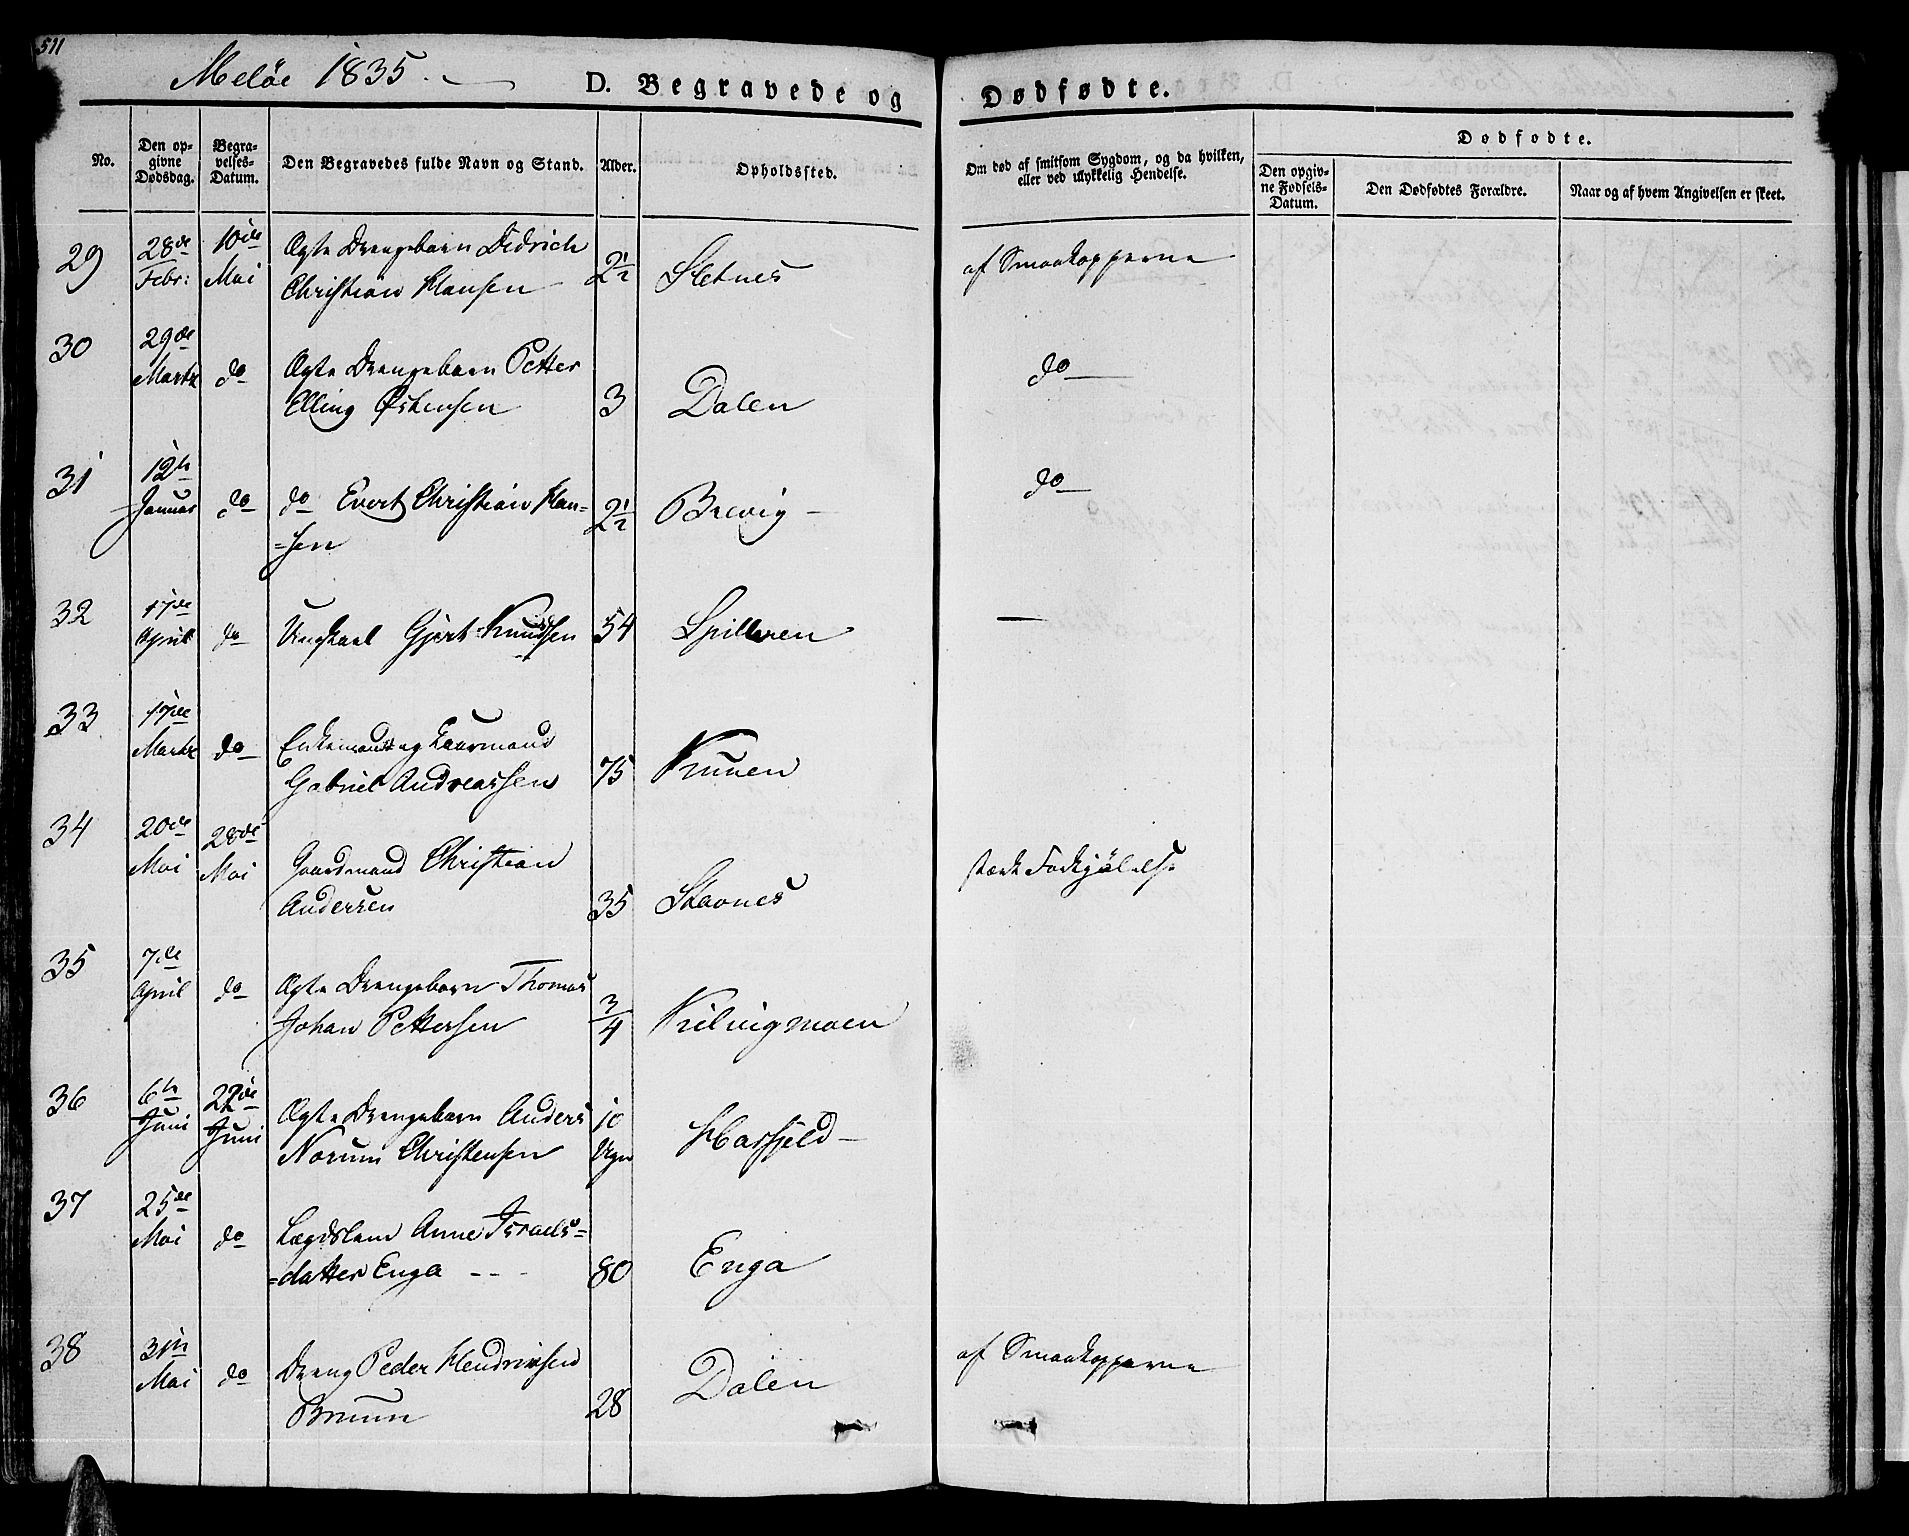 511
Meløe 1835.
D. Begravede og Dødfødte.
No.
Den opgivne Dødsdag.
Begravelses-Datum.
Den Begravedes fulde Navn og Stand.
Alder.
Opholdssted.
Om død af smitsom Sygdom, og da hvilken,
eller ved ulykkelig Hendelse.
Dødfødte.
Den opgivne Fødsels-Datum.
Den Dødfødtes Forældre.
Naar og af hvem Angivelsen er skeet.
29 28de Febr: 10de Mai Ægte Drengebarn Didrich
Christian Hansen 2½ Sletnes af Smaakopperne
30 29de Martz do Ægte Drengebarn Petter
Elling Østensen 3 Dalen do
31 12te Januar do do Evert Christian Han=
=sen 2½ Brevig do
32 17de April do Ungkael Gjert Knudsen 54 Spilderen —
33 17de Martz do Enkemand og Kaarmand
Gabriel Andreassen 75 Kunen
34 20de Mai 28de Mai Gaardmand Christian
Andersen 35 Stavnes stærk Forkjølelse
35 7de April do Ægte Drengebarn Thomas
Johan Pettersen 3/4 Kilvigmoen
36 6te Juni 22de Juni Ægte Drengebarn Anders
Norum Christensen 10 Ugr Harfjeld
37 25de Mai do Lægdslem Anne Israels=
=datter Enga 80 Enga
38 31te Mai do Dreng Peder Hendriksen
Bruun 28 Dalen af Smaakopperne